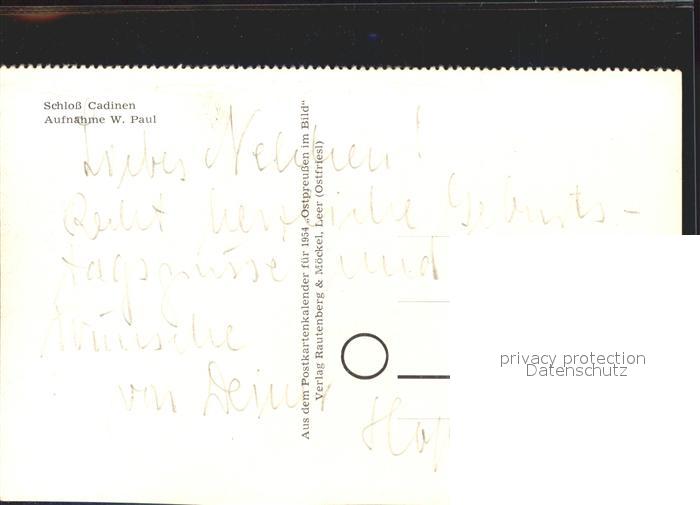 Schloß Cadinen
Aufnahme W. Paul
Liebes Nelchen!
Recht herzliche Geburts-
tagsgrüsse und
Wünsche
von Deiner
Aus dem Postkartenkalender für 1954 „Ostpreußen im Bild“
Verlag Rautenberg & Möckel, Leer (Ostfriesl)
privacy protection
Datenschutz